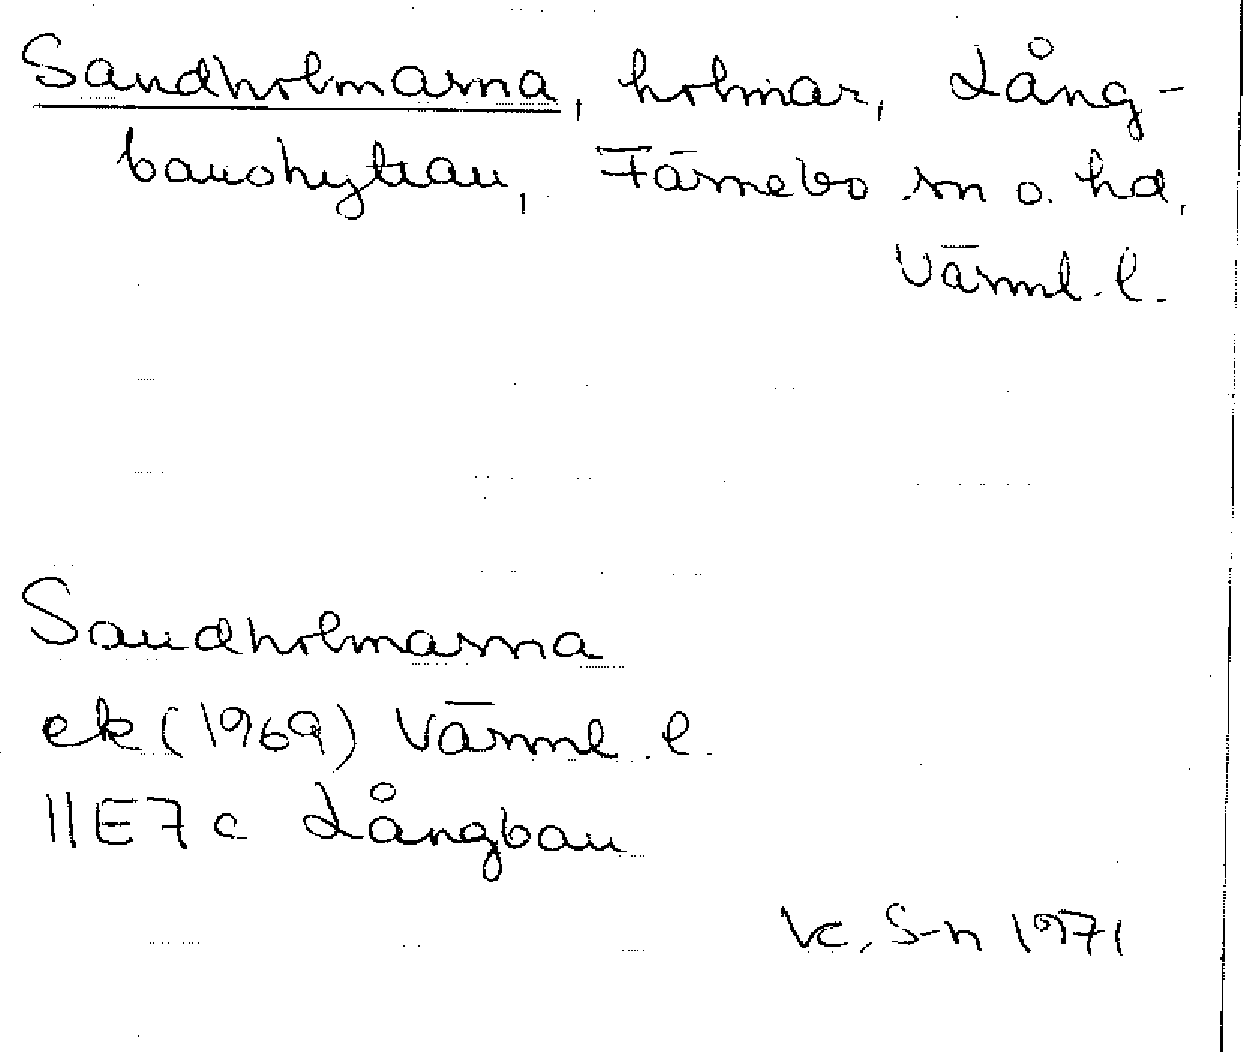 Sandholmarna, holmar, Lång-
banshyttan, Färnebo sn o. hd,
Värml. l.
Sandholmarna
ek (1969) Värml. l.
11E7c Långban
K. S-n 1971